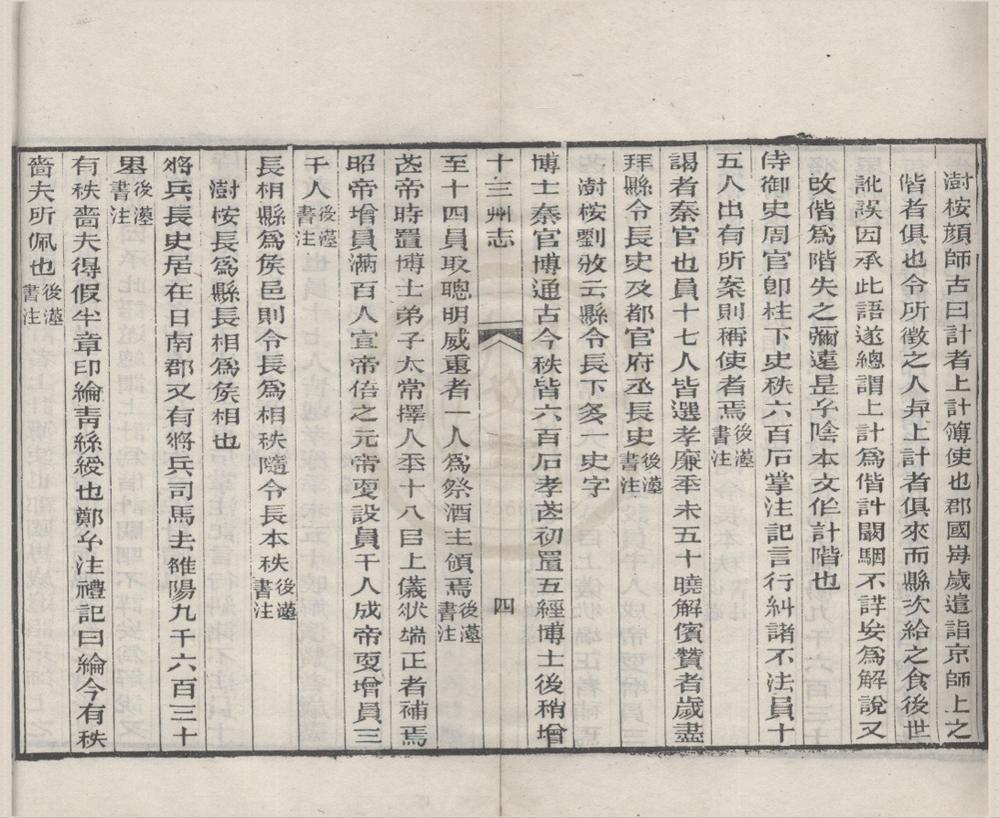 澍桉顏師古曰計者上計簿使也郡國每歲遣詣京師上之
偕者俱也令所徵之人與上計者俱來而縣次給之食後世
訛誤因承此語遂總謂上計爲偕計闞駰不詳妄爲解說又
改偕爲階失之彌遠是子陰本文作計階也
侍御史周官卽柱下史秩六百石掌注記言行糾諸不法員十
五人出有所案則稱使者焉後漢書注
謁者秦官也員十七人皆選孝廉年未五十曉解儐贊者歲盡
拜縣令長史及都官府丞長史後漢書注
澍桉劉攽云縣令長下多一史字
博士秦官博通古今秩皆六百石孝武初置五經博士後稍增
十三州志
四
至十四員取聰明威重者一人爲祭酒主領焉後漢書注
武帝時置博士弟子太常擇人年十八㠯上儀狀端正者補焉
昭帝增員滿百人宣帝倍之元帝更設員千人成帝更增員三
千人後漢書注
長相縣爲矦邑則令長爲相秩隨令長本秩後漢書注
澍桉長爲縣長相爲矦相也
將兵長史居在日南郡又有將兵司馬去雒陽九千六百三十
里後漢書注
有秩嗇夫得假半章印綸青絲綬也鄭子注禮記曰綸今有秩
嗇夫所佩也後漢書注